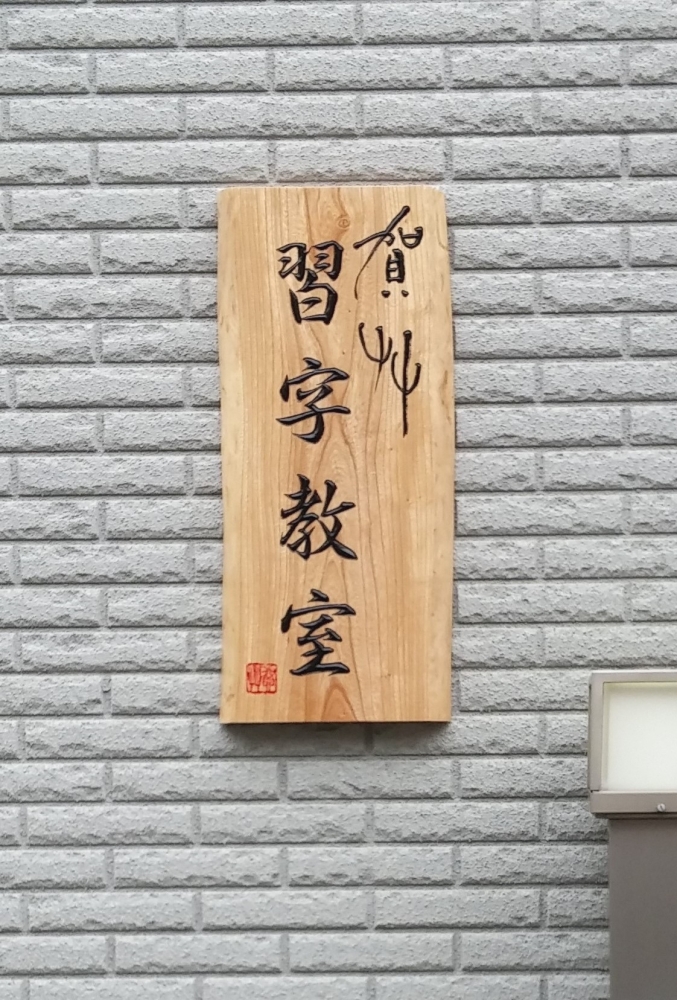 賀艸
習字教室